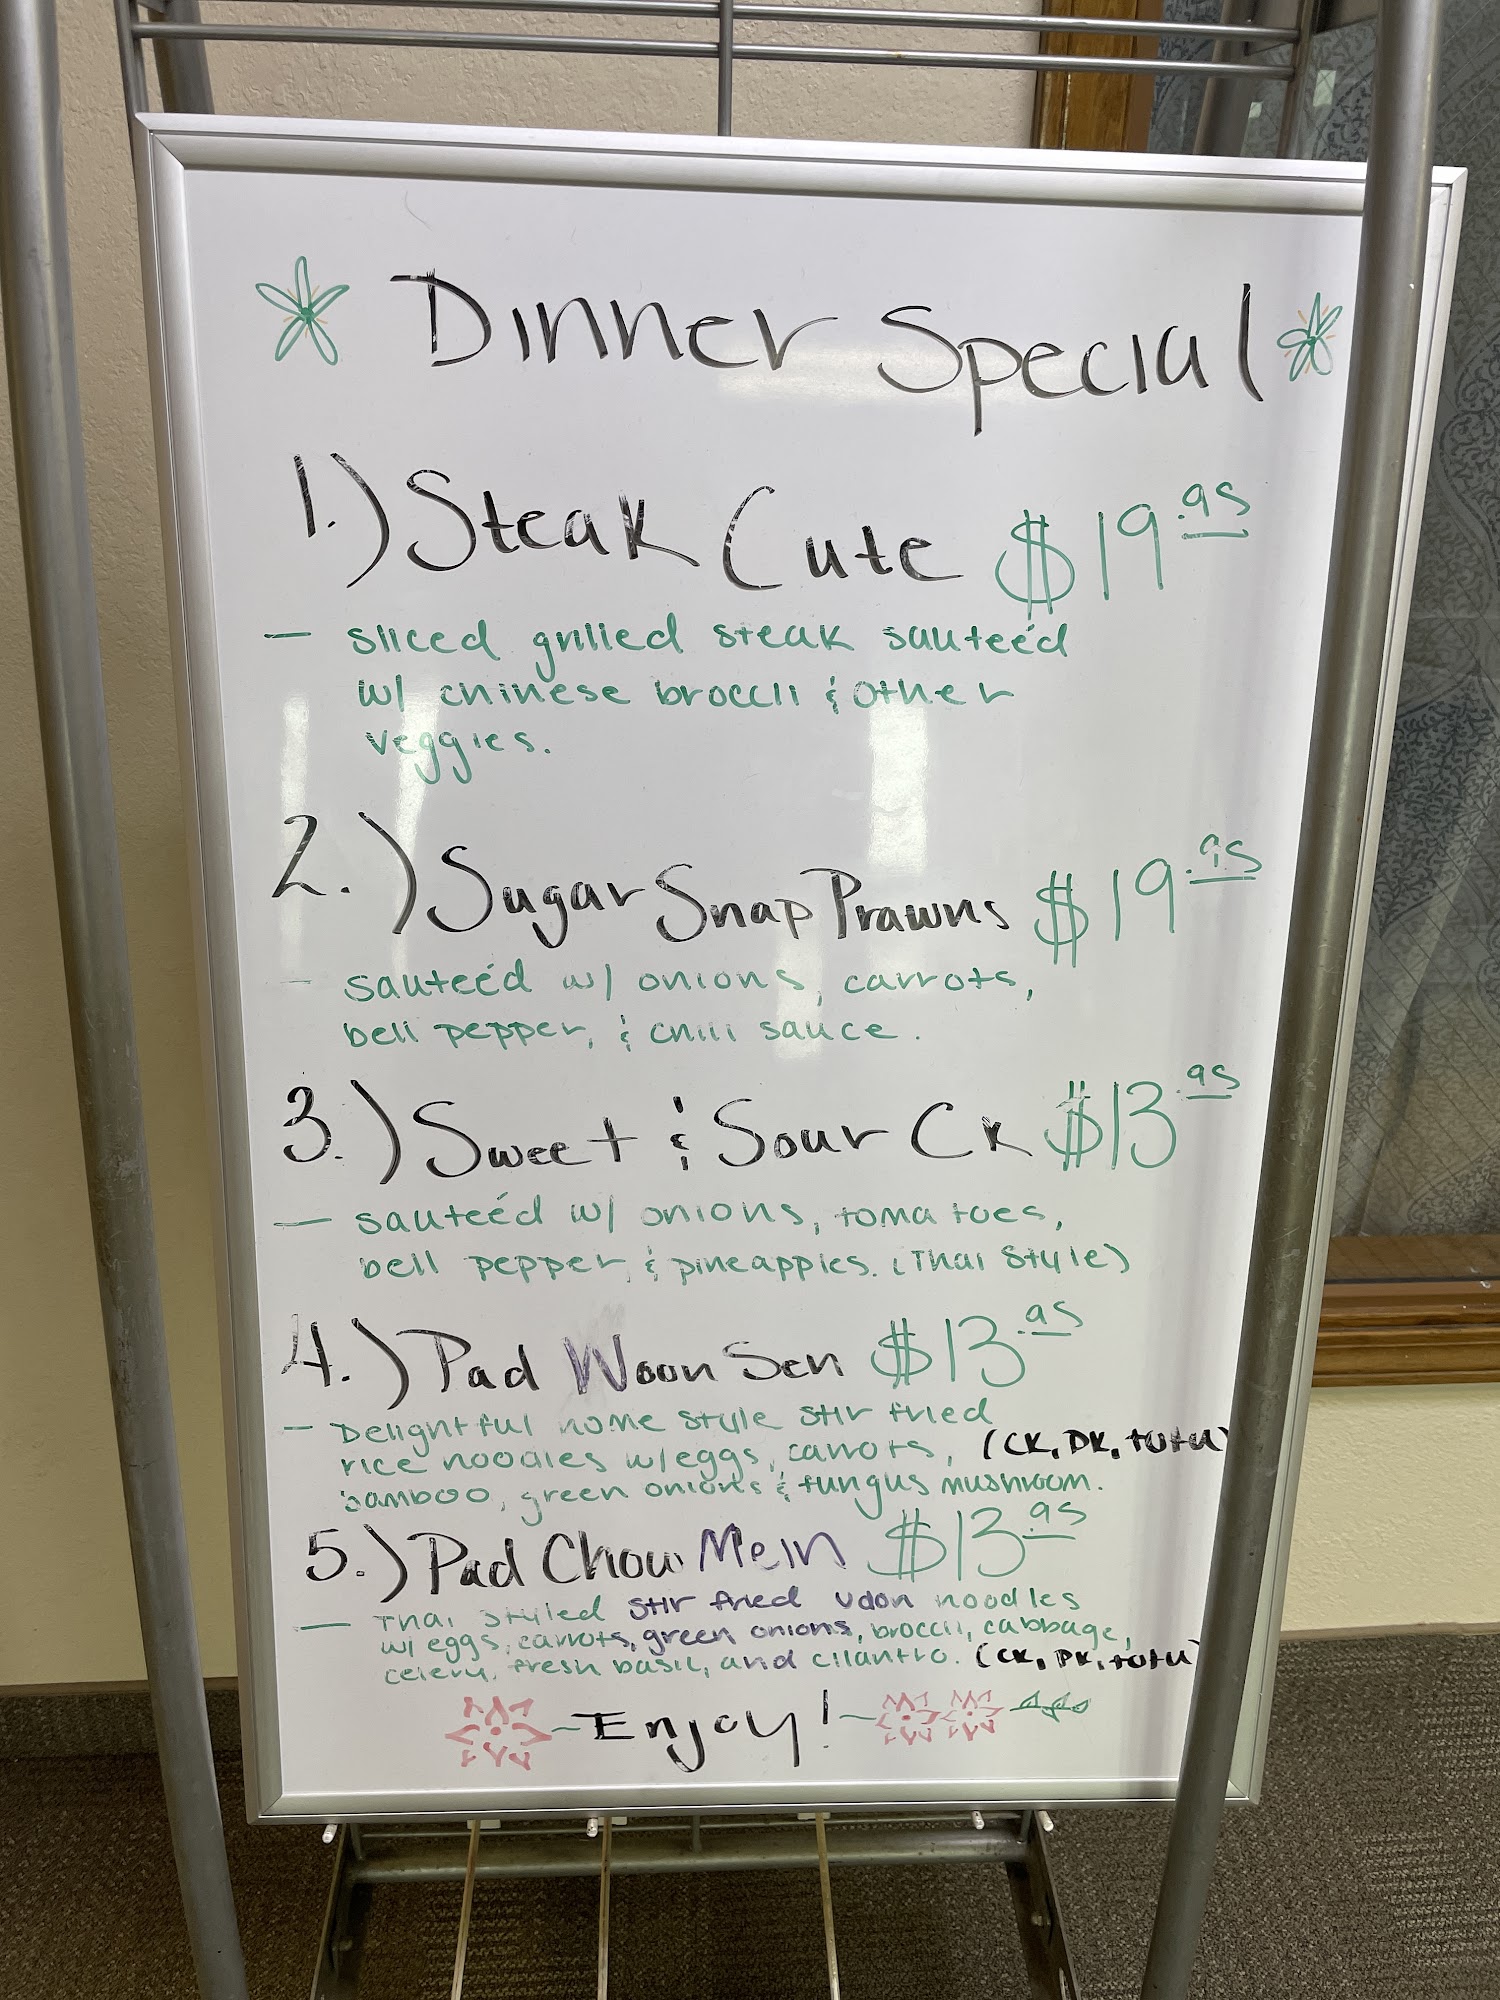 Dinner Special
1.) Steak Cute $19.95
- sliced grilled steak sauteéd
w/ chinese broccli & other
veggies.
2.) Sugar Snap Prawns $19.95
- sauteéd w/ onions, carrots,
bell pepper, & chili sauce.
3.) Sweet & Sour Ck $13.95
- sauteéd w/ onions, tomatoes,
bell pepper, & pineapples. (Thai Style)
4.) Pad Woon Sen $13.95
- Delightful home style stir fried
rice noodles w/eggs, carrots, (CK, PK, tofu)
bamboo, green onions & fungus mushroom.
5.) Pad Chow Mein $13.95
- Thai styled stir fried udon noodles
w/ eggs, carrots, green onions, broccli, cabbage,
celery, fresh basil, and cilantro. (CK, PK, tofu)
~Enjoy!~